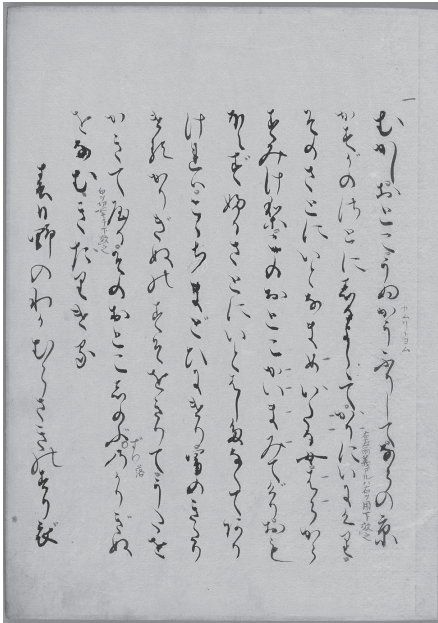 一
むかしおとこうゐかうふりしてならの京
かすがのさとにしるよしゝてかりにいにけり
そのさとにいとなまめいたる女はらから
すみけりこのおとこかいまみてけりおも
ほえずふるさとにいとはしたなくてあり
ければこゝちまどひにけり男のきたり
けるかりぎぬのすそをきりてうたを
かきてやるそのおとこしのぶのかりぎぬ
をなむきたりける
春日野のわかむらさきのすり衣
カムリトヨム